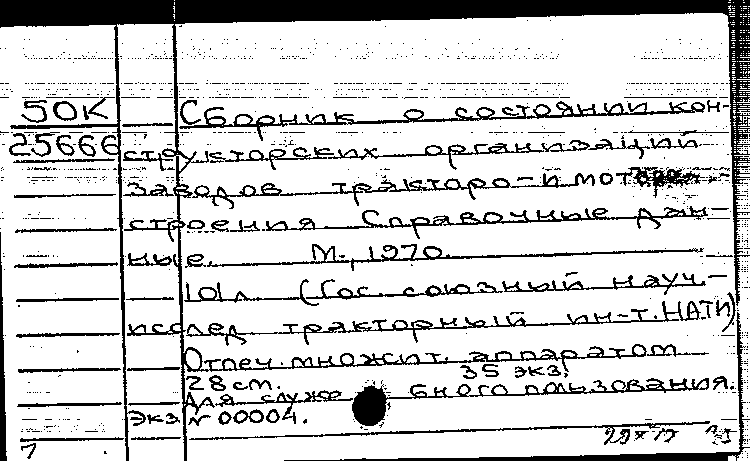 50К Сборник о состоянии кон-
25666 структорских организаций
заводов тракторо- и моторо-
строения. Справочные дан-
ные. М., 1970.
101 л. (Гос. союзный науч.-
исслед. тракторный ин-т. НАТИ)
Отпеч. множит. аппаратом
28 см. 35 экз.
Для служебного пользования.
Экз. № 00004.
7